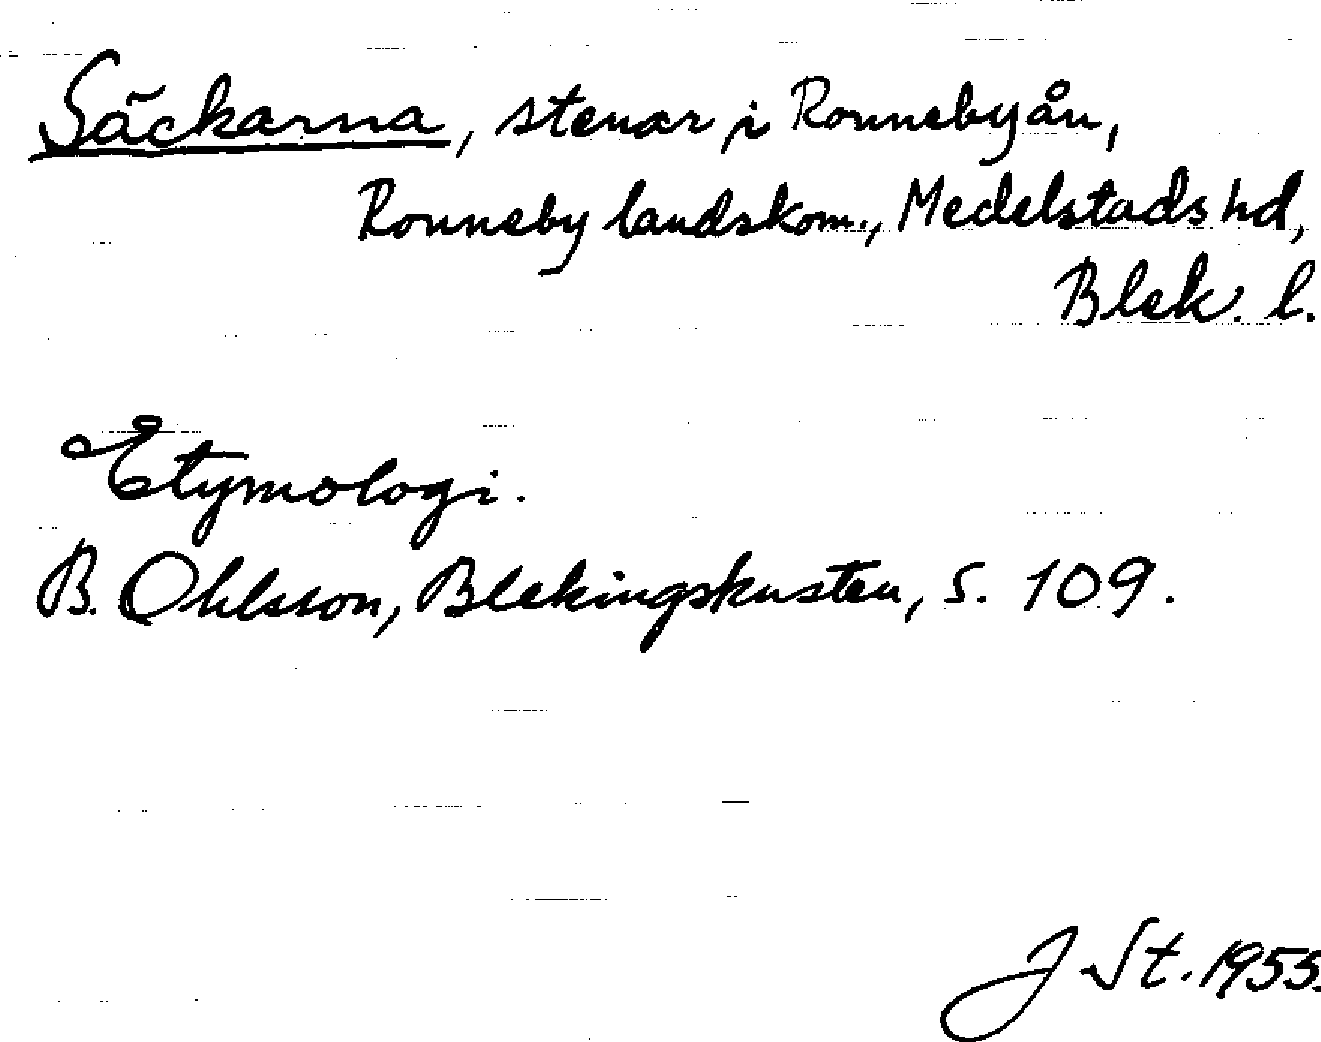 Säckarna, stenar i Ronnebyån,
Ronneby landskom., Medelstads hd,
Blek. l.
Etymologi.
B. Ohlsson, Blekingskusten, s. 109.
J St. 1953.